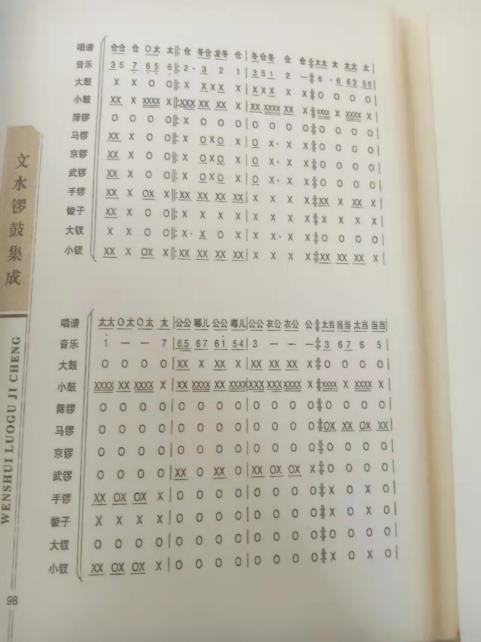 唱谱 仓仓 仓 O太 太 仓 冬仓 龙冬 仓 冬仓冬 仓 仓 太太 太 太太 太
音乐 3 5 7 6 5 6 2· 3 2 1 3 5 1 2 — 6 · 6 6 3 5 6
大鼓 X X O O X XXX X XXX X X X O O O O
小鼓 XX X XXXX X XXX XX XX X XX XXXX XX X XXXX X XXXX X
筛锣 X O O O O O O O O O O O O O O O
马锣 XX X O O X OXO X O X· X O O O O
京锣 XX X O O X OXO X O X· X O O O O
武锣 XX X O O X OXO X O X· X O O O O
手锣 XX X OX X XX XX XX XX X X X X XX X XX X
镲子 XX X O O X X X X X X X X X X X X
大钗 X X O O X· X O X X· X X O O O O
小钗 XX X OX X XX XX XX XX X X X X XX XX XX X
文水锣鼓集成
WENSHUI LUOGU JI CHENG
唱谱 太太 O太 O太 太 公公 嘟儿 公公 嘟儿 公公 衣公 衣公 公 太当 当当 太 当当
音乐 1 — — 7 65 67 61 54 3 — — — 3 67 6 5
大鼓 O O O O XX X XX X XX XX XX X O O O O
小鼓 XXXX XX XXXX X XX XXXX XX XXXX XXX XXX XXXX X XXXX X XXXX X
筛锣 O O O O O O O O O O O O O O O O
马锣 O O O O O O O O O O O O OX XX OX XX
京锣 O O O O O O O O O O O O O O O O
武锣 O O O O XX O XX O XX OX OX X O O O O
手锣 XX OX OX X O O O O O O O O X O X O
镲子 X X X X O O O O O O O O X O X O
大钗 O O O O O O O O O O O O O O O O
小钗 XX OX OX X O O O O O O O O X O X O
98